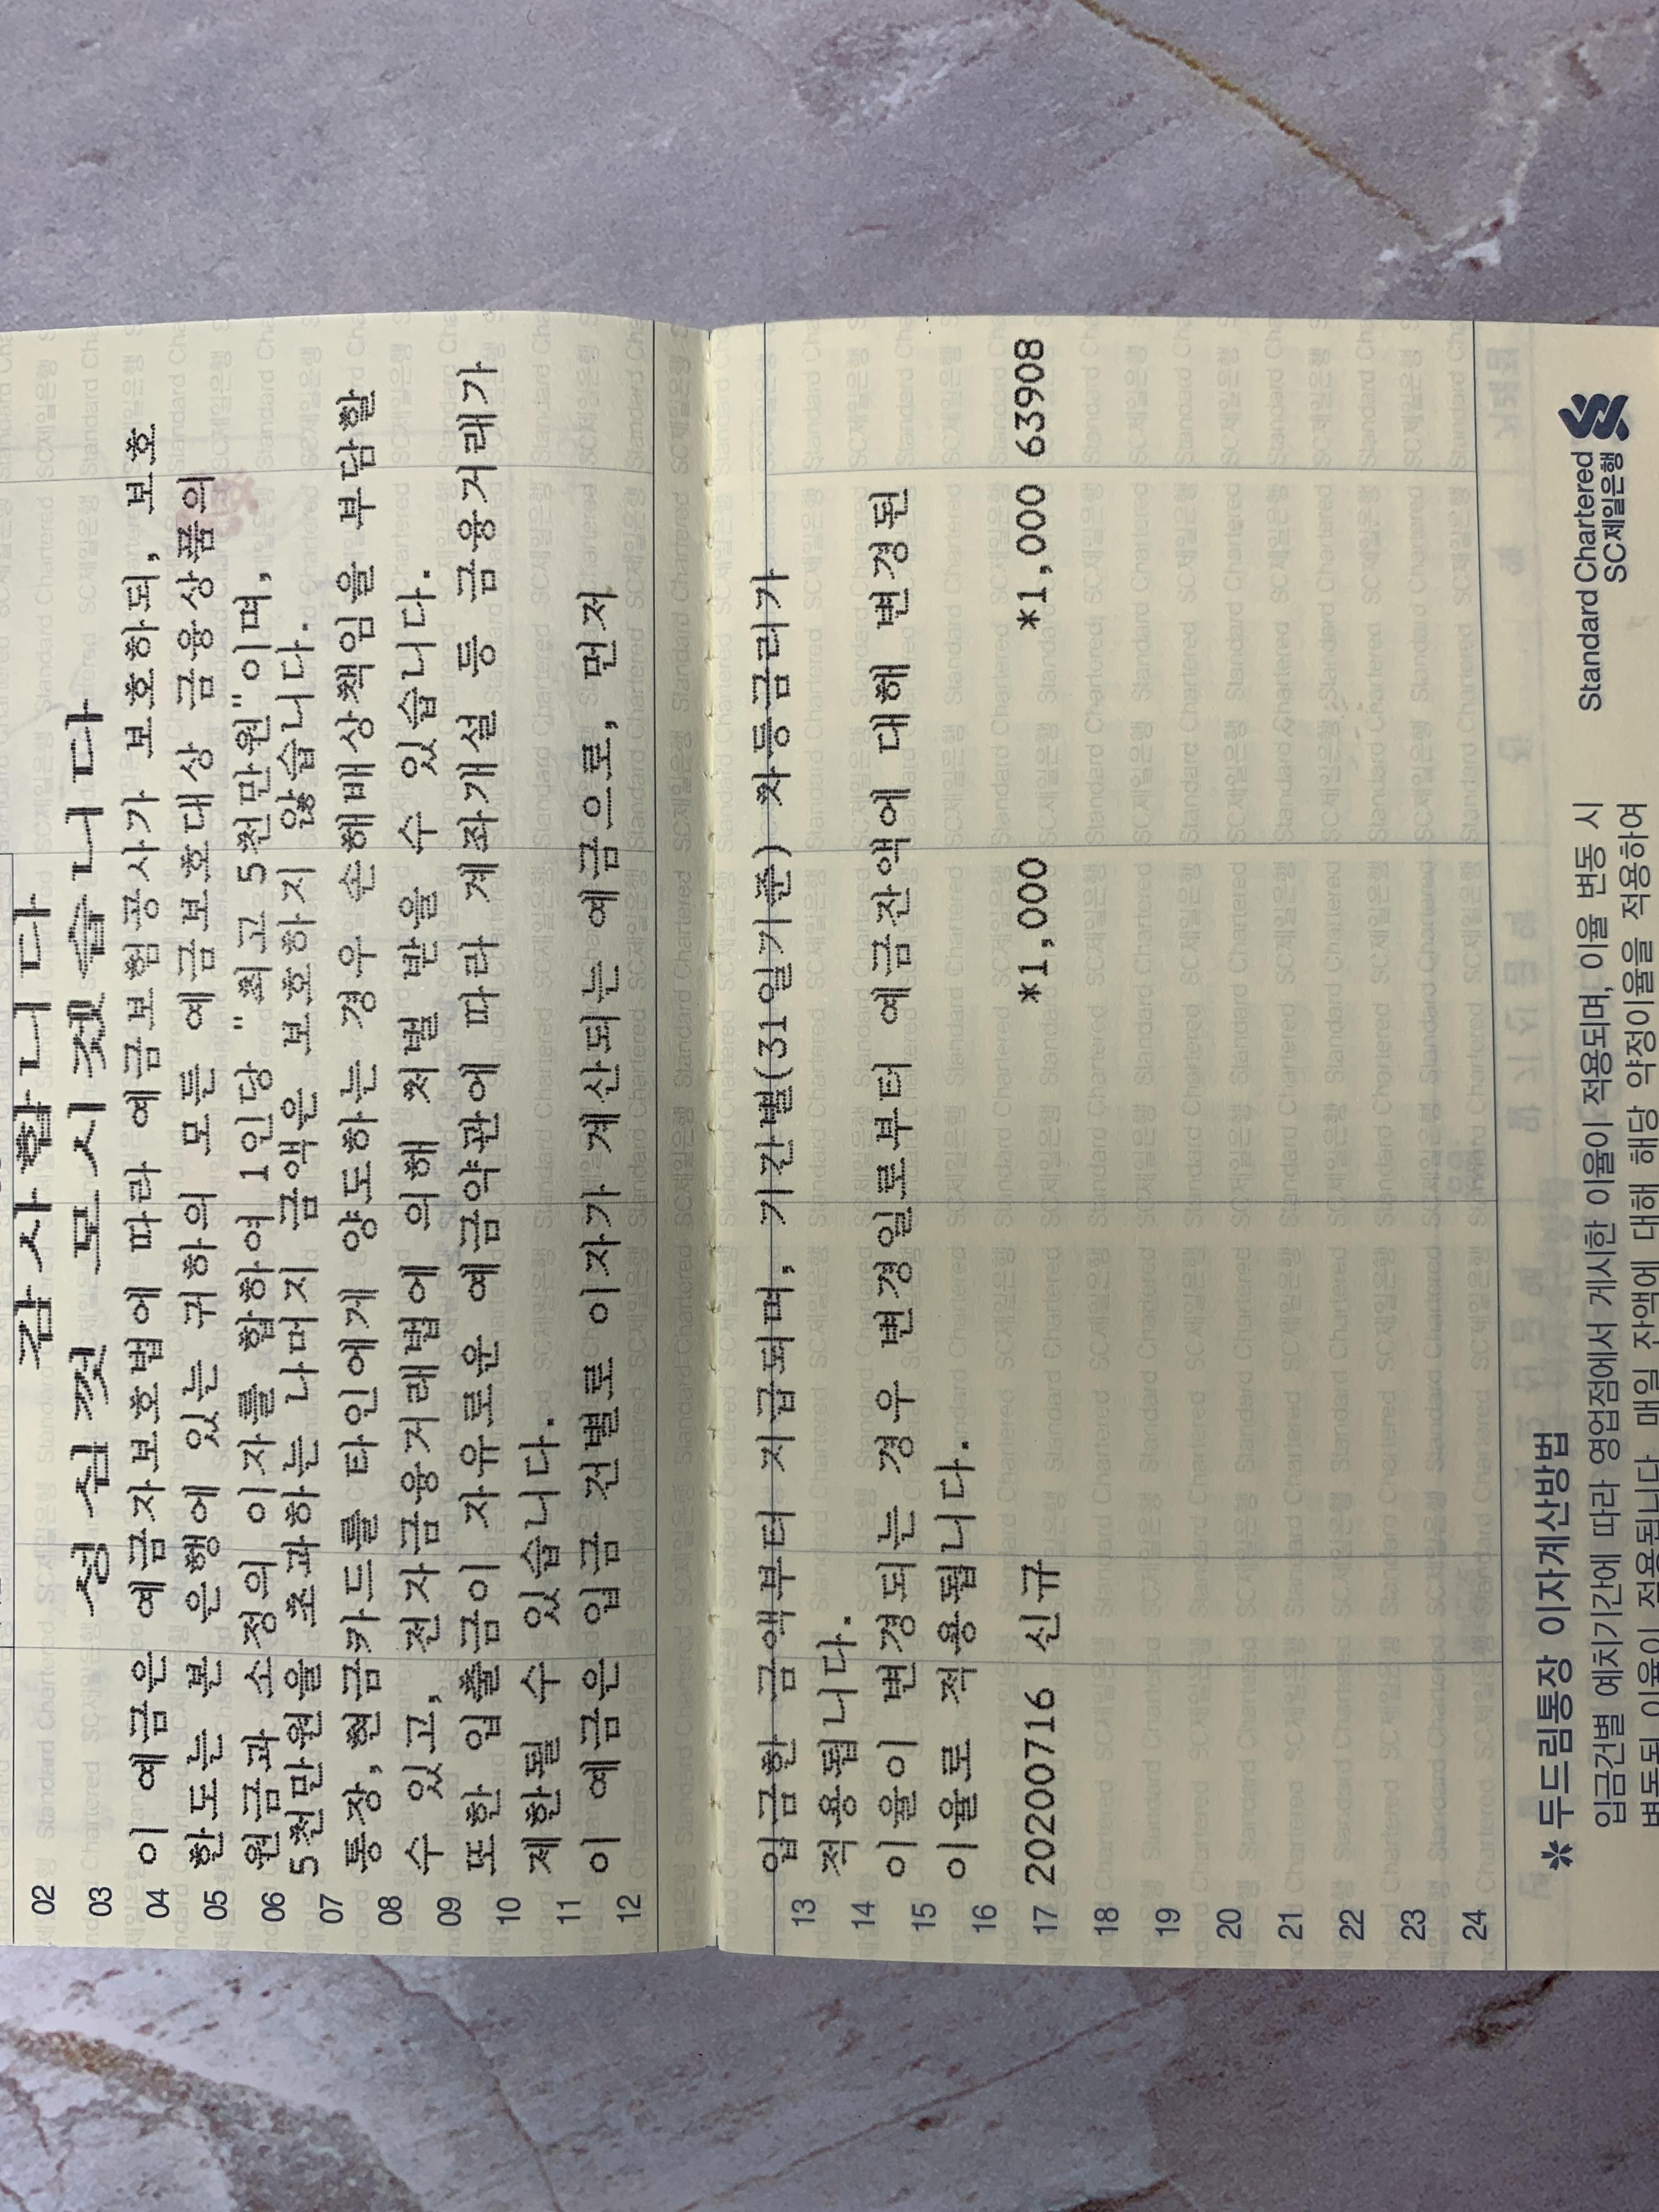 02 감사합니다
03 성심껏 모시겠습니다
04 이 예금은 예금자보호법에 따라 예금보험공사가 보호하되, 보호
05 한도는 본 은행에 있는 귀하의 모든 예금보호대상 금융상품의
06 원금과 소정의 이자를 합하여 1인당 "최고 5천만원"이며,
5천만원을 초과하는 나머지 금액은 보호하지 않습니다.
07 통장,현금카드를 타인에게 양도하는 경우 손해배상책임을 부담할
08 수 있고, 전자금융거래법에 의해 처벌 받을 수 있습니다.
09 또한 입출금이 자유로운 예금약관에 따라 계좌개설 등 금융거래가
10 제한될 수 있습니다.
11 이 예금은 입금 건별로 이자가 계산되는 예금으로, 먼저
12
13 입금한 금액부터 지급되며, 기간별(31일기준) 차등금리가
14 적용됩니다.
15 이율이 변경되는 경우 변경일로부터 예금잔액에 대해 변경된
16 이율로 적용됩니다.
17 20200716 신규 *1,000 *1,000 63908
18
19
20
21
22
23
24
✻ 두드림통장 이자계산방법
입금건별 예치기간에 따라 영업점에서 게시한 이율이 적용되며, 이율 변동 시
변동된 이율이 적용됩니다. 매일 잔액에 대해 해당 약정이율을 적용하여
Standard Chartered
SC제일은행